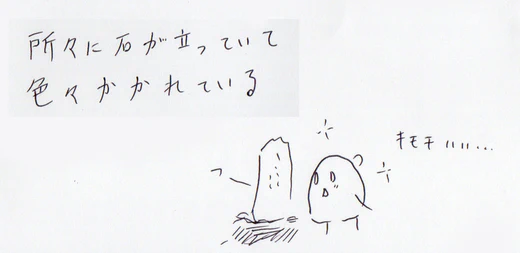 所々に石が立っていて
色々かかれている
キモチいい...